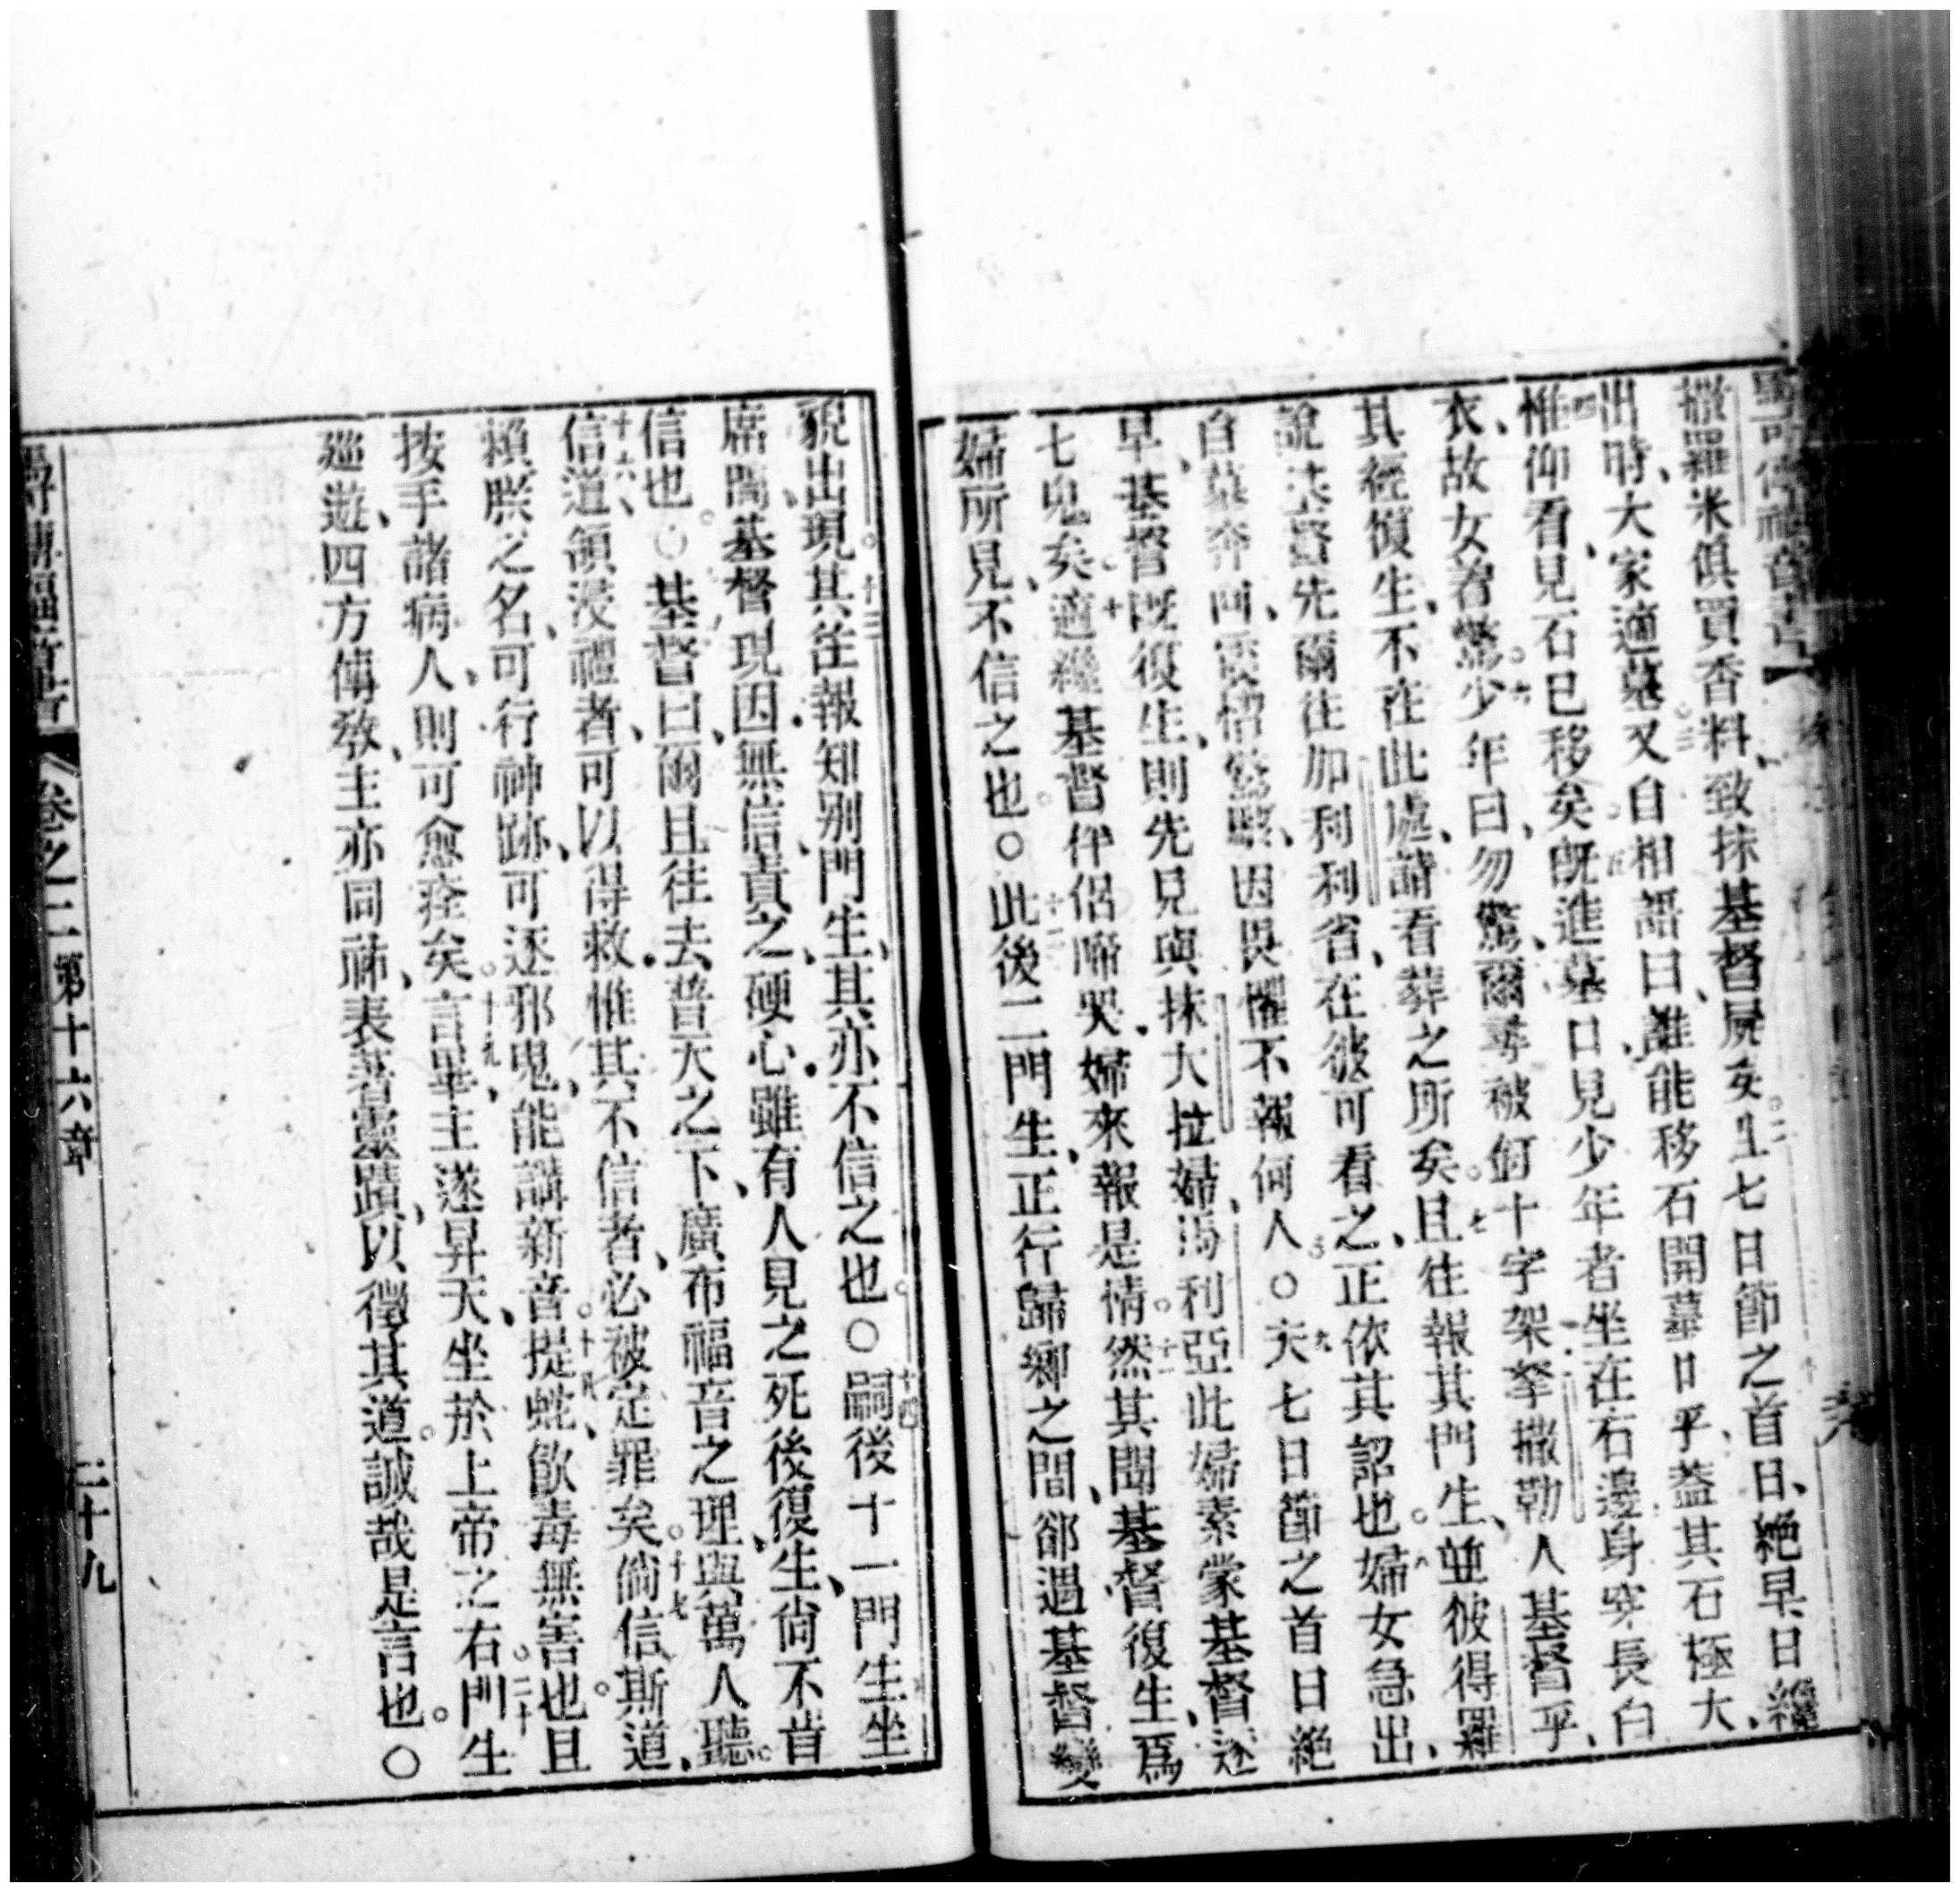 撒羅米俱買香料、致抹基督屍矣。二且七日節之首日、絕早、日纔
出時、大家適墓。三又自相語曰、誰能移石開墓口乎、蓋其石極大、
四惟仰看、見石已移矣。五旣進墓口、見少年者坐在右邊身穿長白
衣、故女者驚。六少年曰、勿驚、爾尋被釘十字架拏撒勒人基督乎、
其經復生、不在此處、請看葬之所矣。七且往報其門生、並彼得羅
說基督先爾往加利利省、在彼可看之、正依其詔也。八婦女急出、
自墓奔回、震慴驚駭、因畏懼不報何人。○九夫七日節之首日絕
早、基督旣復生、則先見與抹大拉婦、馮利亞、此婦素蒙基督逐
七鬼矣。十適維基督伴侶啼哭、婦來報是情。十一然其聞基督復生、爲
婦所見、不信之也。○十二此後二門生、正行歸鄉之間、郤遇基督變
貌出現。十三其往報知别門生、其亦不信之也。○十四嗣後十一門生坐
席間、基督現、因無信、責之硬心、雖有人見之死後復生、尙不肯
信也。○基督曰、爾且往去普天之下、廣布福音之理、與萬人聽。
十六、信道領浸禮者、可以得救、惟其不信者、必被定罪矣。十七倘信斯道、
賴朕之名、可行神跡、可逐邪鬼、能講新音。十八、提蛇飲毒無害也。且
按手諸病人、則可愈痊矣。十九、言畢、主遂昇天、坐於上帝之右。二十門生
廵遊四方傳敎、主亦同祐、表著靈蹟、以徵其道。誠哉是言也。○
卷之二 第十六章 二十九